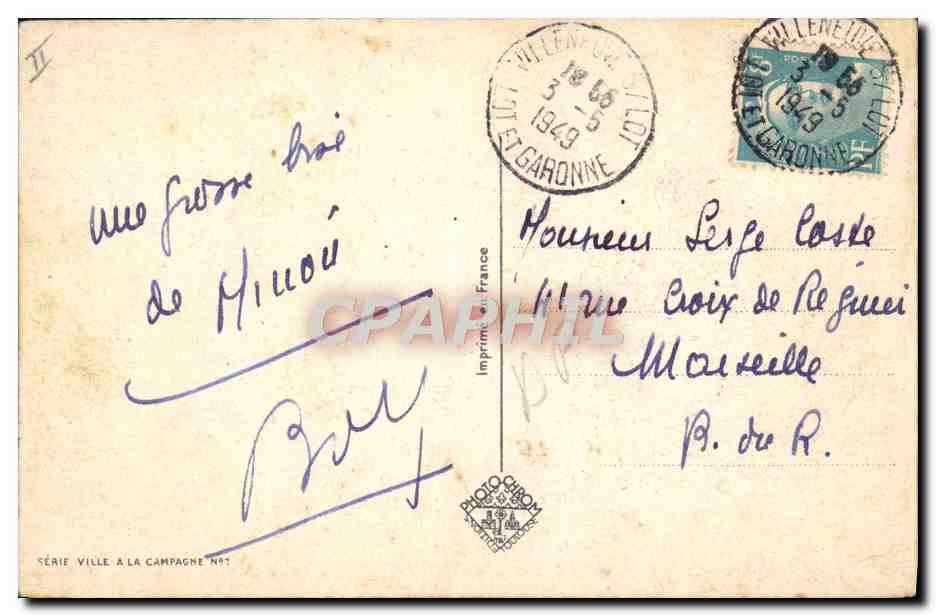 II
une grosse bise
de Minou
VILLENEUVE S/LOT
18 66
3 - 5
1949
LOT ET GARONNE
VILLENEUVE S/LOT
18 66
3 - 5
1949
LOT ET GARONNE
F
Monsieur Serge Coste
41 rue Croix de Régnier
Marseille
B. du R.
CPAPHIL
Imprimé en France
PHOTO-CHROM
TOULOUSE
SÉRIE VILLE A LA CAMPAGNE Nº